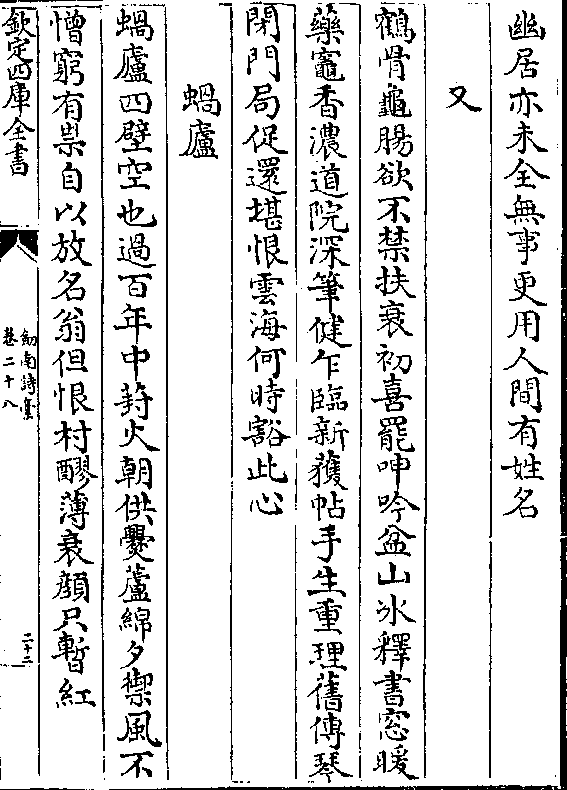 幽居亦未全無事更用人間有姓名
又
鶴骨龜腸欲不禁扶衰初喜罷呻吟盆山氷釋書窓暖
藥竈香濃道院深筆健乍臨新獲帖手生重理舊傳琴
閉門局促還堪恨雲海何時豁此心
蝸廬
蝸廬四壁空也過百年中葑火朝供爨蘆綿夕禦風不
憎窮有祟自以放名翁但恨村醪薄衰顔只暫紅
欽定四庫全書
劎南詩稾
卷二十八
二十二